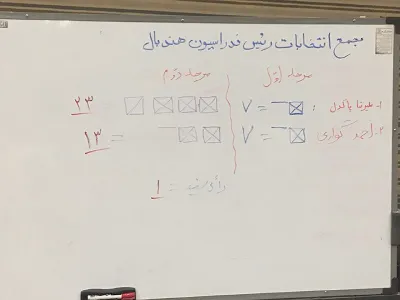 مجمع انتخابات رئیس فدراسیون هندبال
مرحله اول مرحله دوم
۱- علیرضا پاکدل : = ۷ ۲۳
۲- احمد گواری = ۷ = ۱۳
رأی سفید = ۱